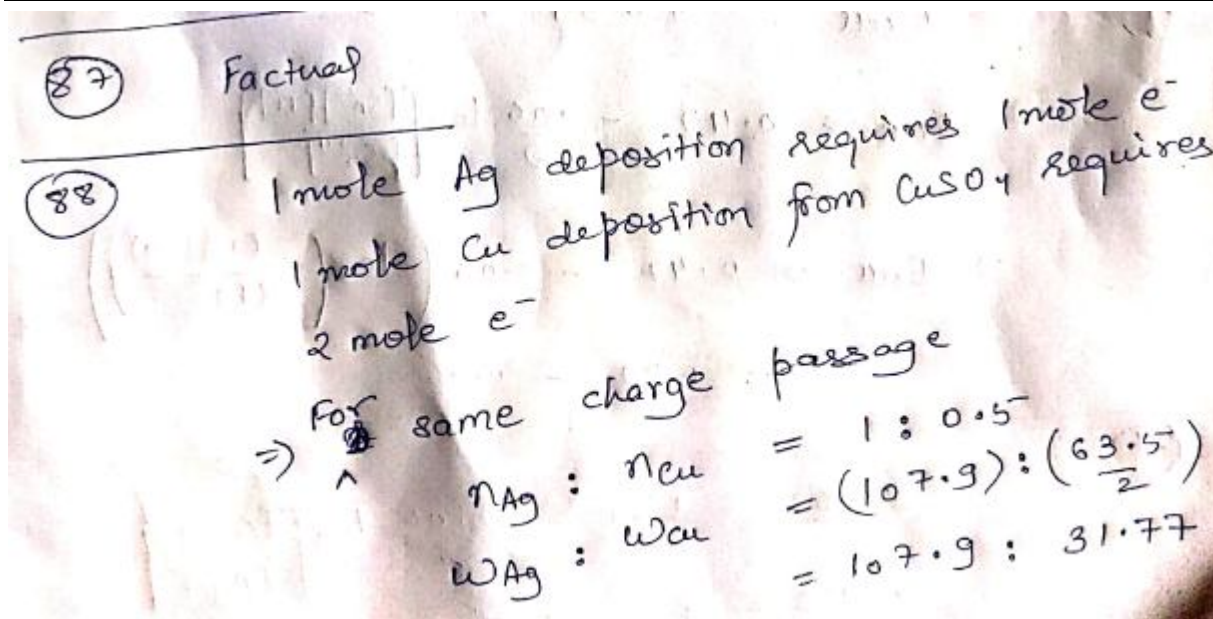 87 Factual
88 1 mole Ag deposition requires 1 mole e⁻
1 mole Cu deposition from CuSO4 requires
2 mole e⁻
⇒ For same charge passage
nAg : nCu = 1 : 0.5
wAg : wCu = (107.9) : (63.5/2)
= 107.9 : 31.77